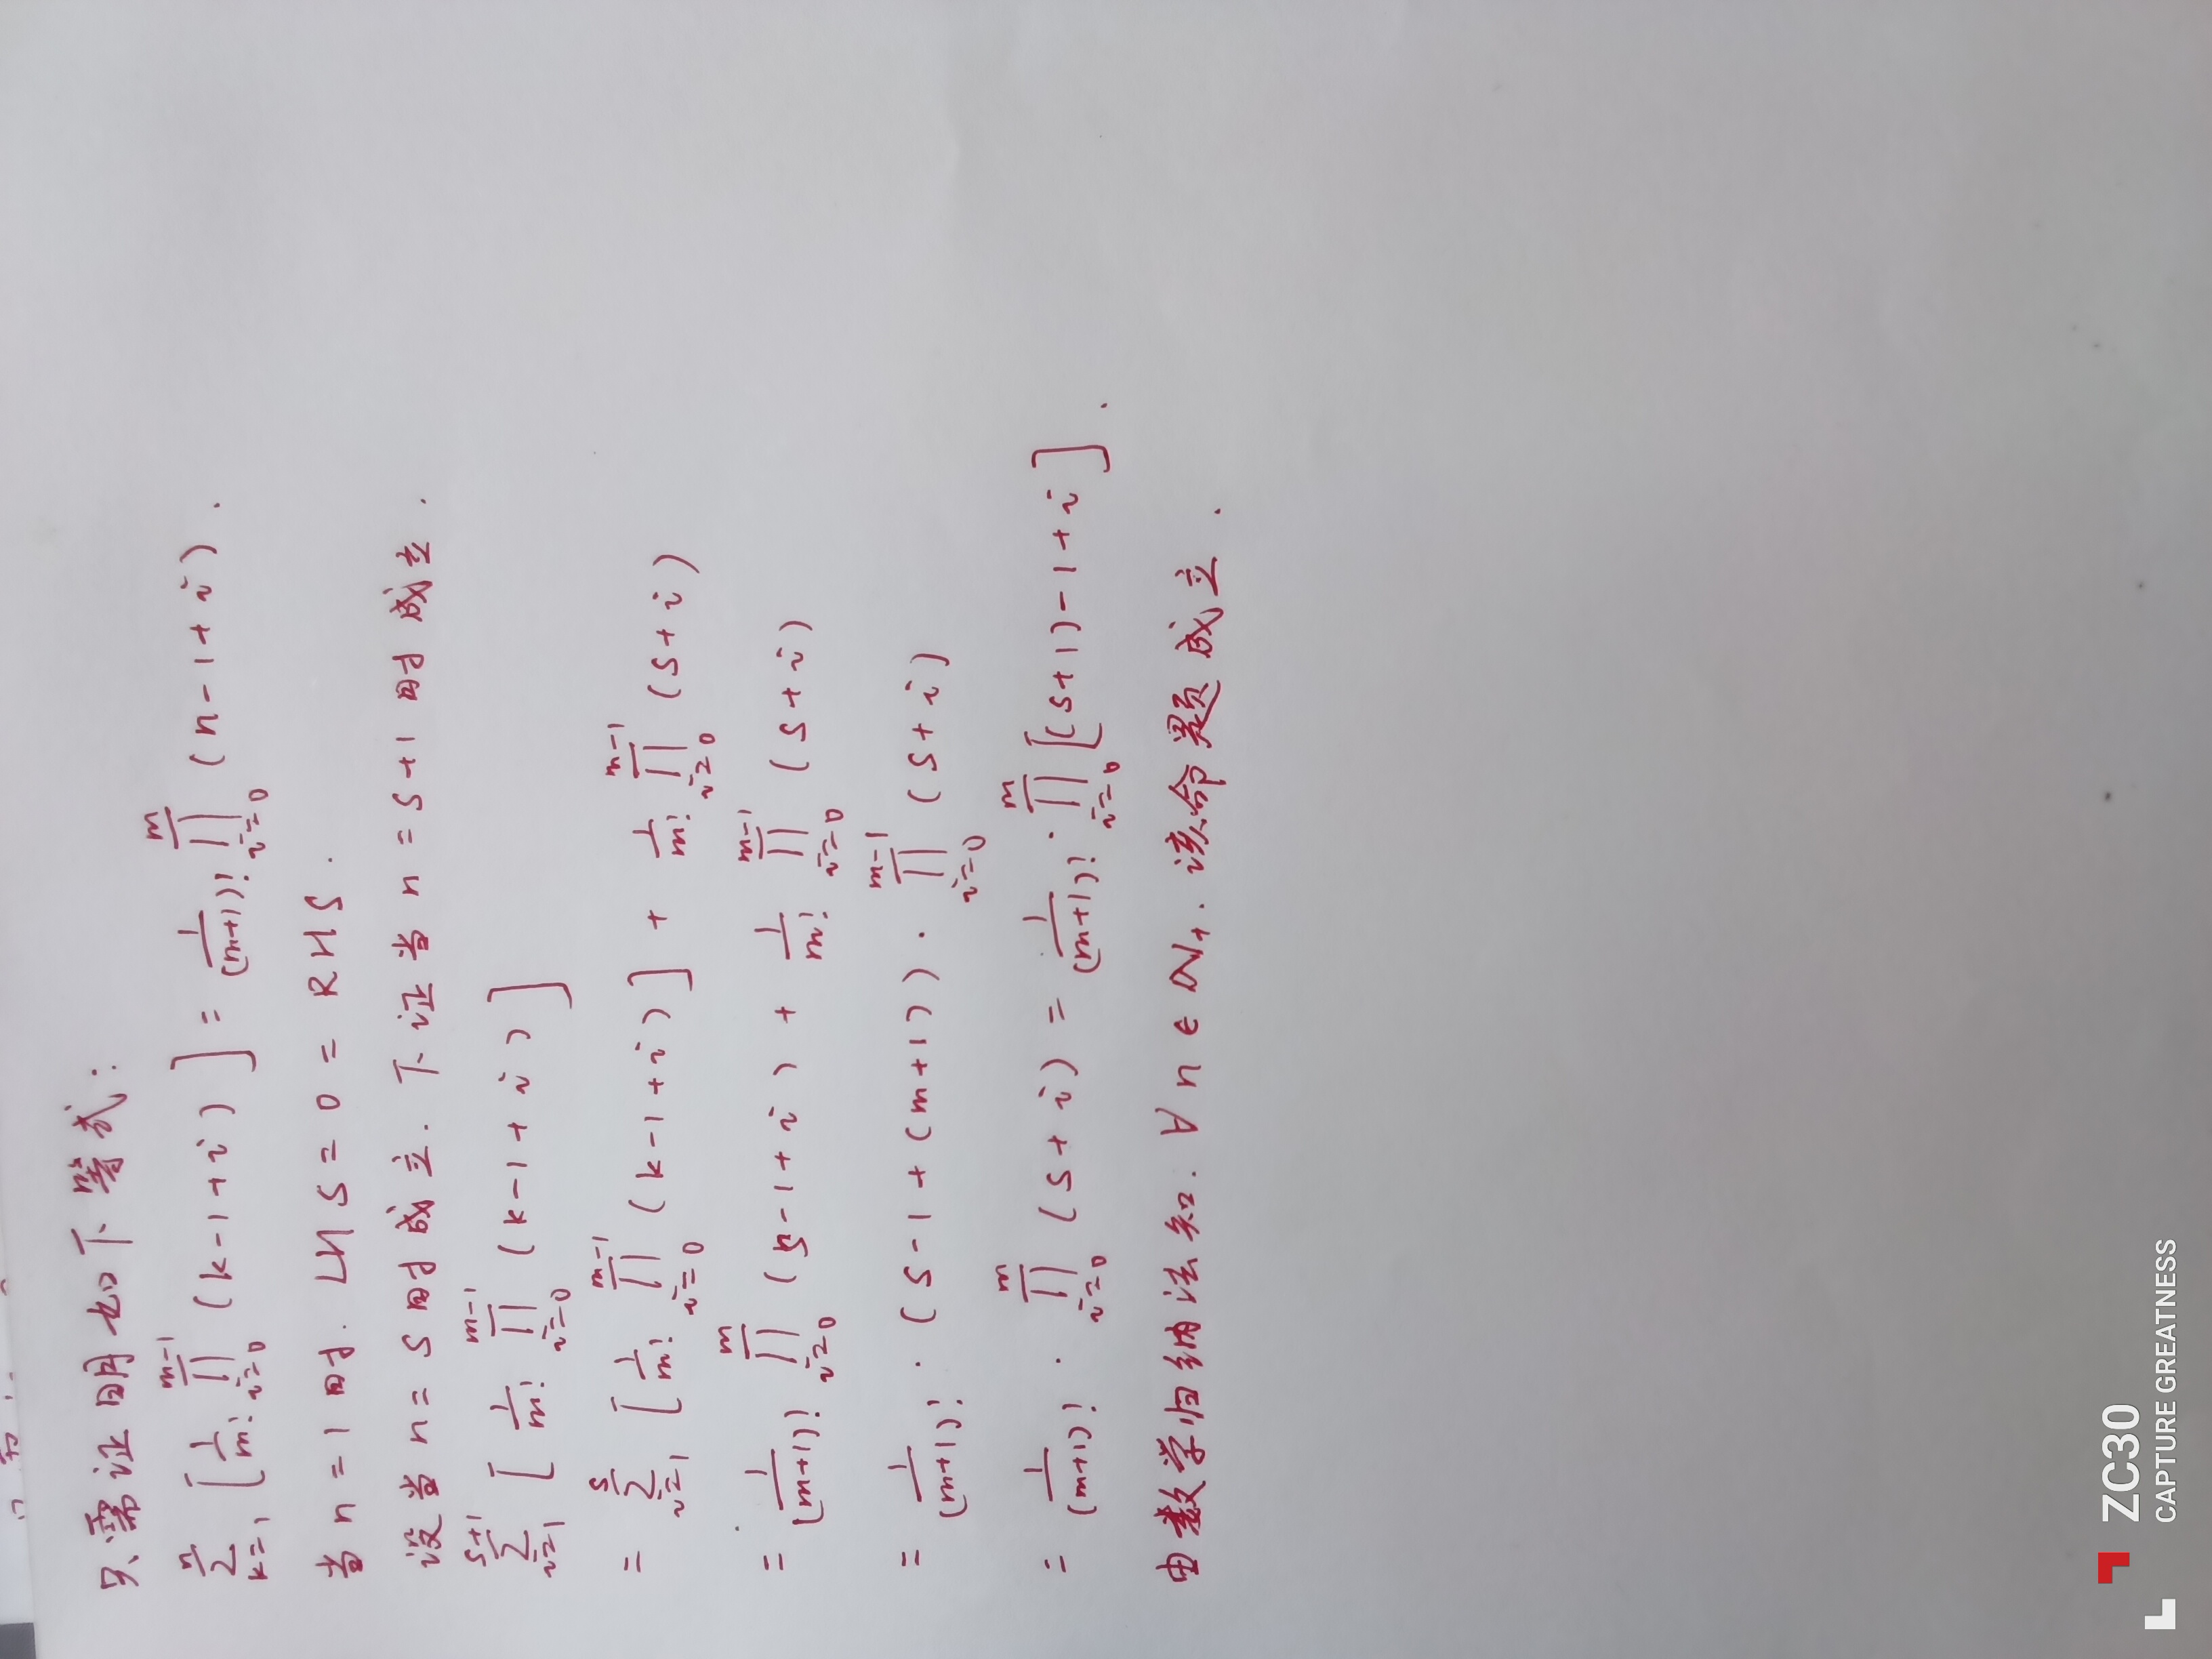 只需证明如下等式:
\sum_{k=1}^{n} [\frac{1}{m!} \prod_{i=0}^{m-1} (k-1+i)] = \frac{1}{(m+1)!} \prod_{i=0}^{m} (n-1+i).
当 n=1 时. LHS=0=RHS.
设当 n=s 时成立. 下证当 n=s+1 时成立.
\sum_{i=1}^{s+1} [\frac{1}{m!} \prod_{i=0}^{m-1} (k-1+i)]
= \sum_{i=1}^{s} [\frac{1}{m!} \prod_{i=0}^{m-1} (k-1+i)] + \frac{1}{m!} \prod_{i=0}^{m-1} (s+i)
= \frac{1}{(m+1)!} \prod_{i=0}^{m} (s-1+i) + \frac{1}{m!} \prod_{i=0}^{m-1} (s+i)
= \frac{1}{(m+1)!} · (s-1+(m+1)) · \prod_{i=0}^{m-1} (s+i)
= \frac{1}{(m+1)!} · \prod_{i=0}^{m} (s+i) = \frac{1}{(m+1)!} · \prod_{i=0}^{m} [(s+1)-1+i].
由数学归纳法知. ∀ n ∈ N₊. 该命题成立.
ZC30
CAPTURE GREATNESS